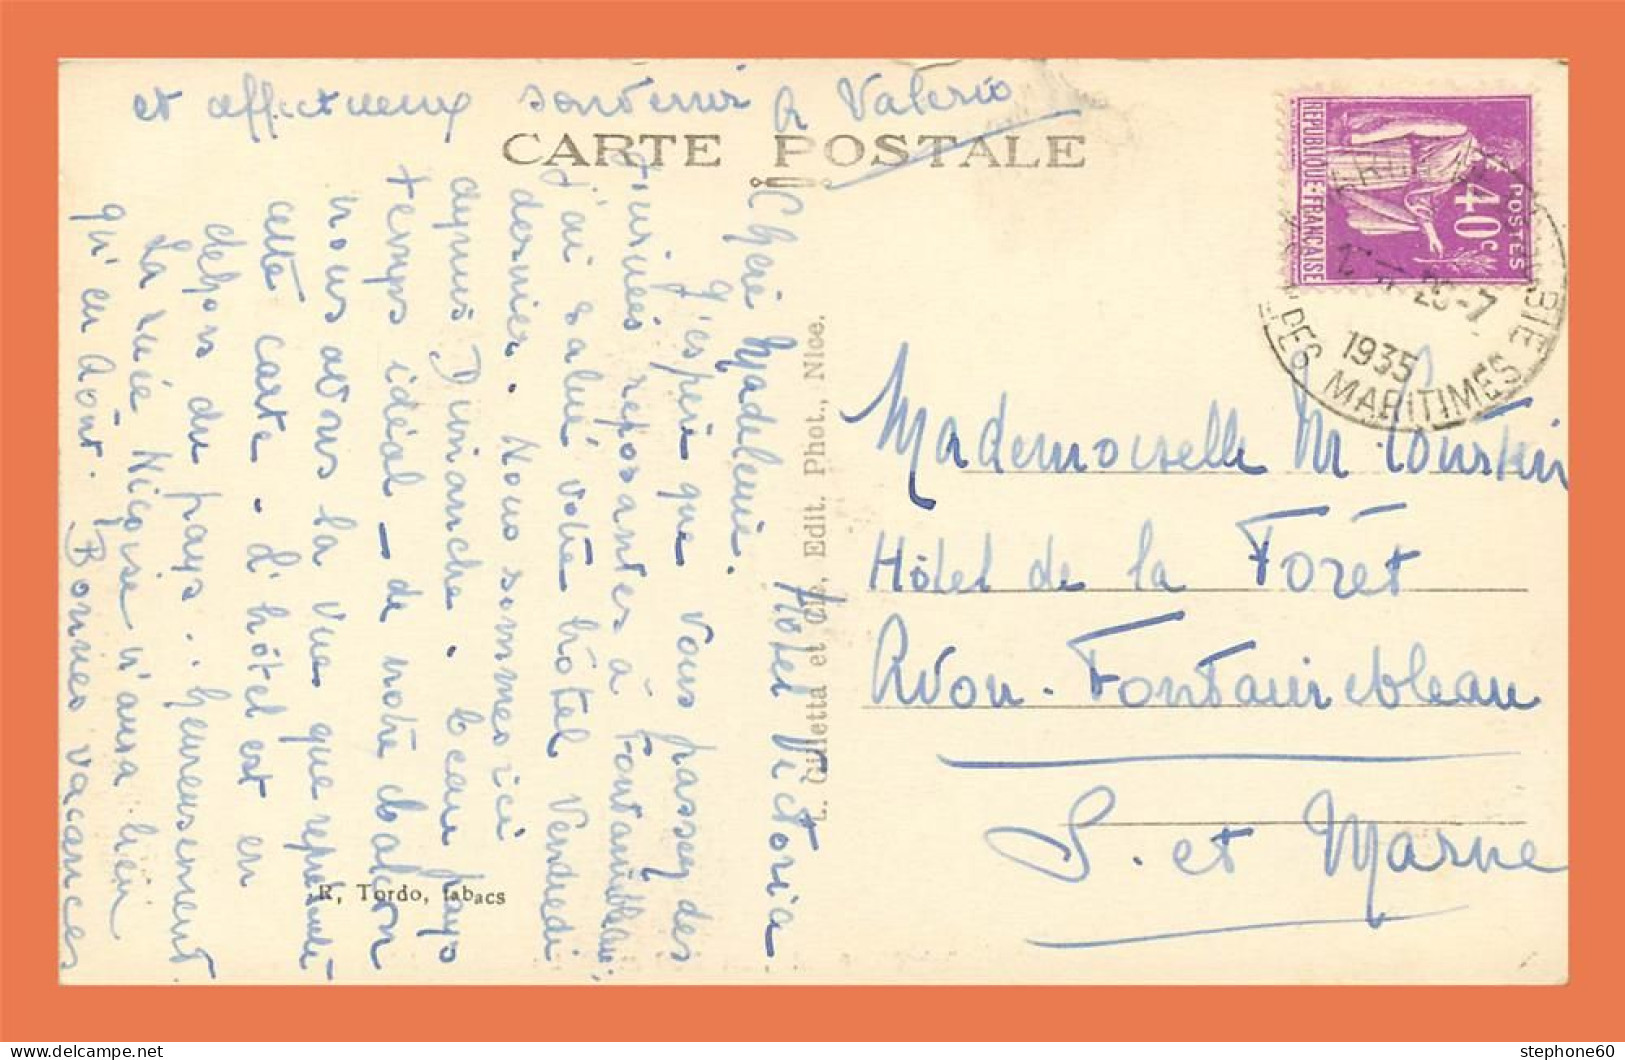 CARTE POSTALE
Hôtel Victoria
Chère Madeleine.
J'espère que vous passez des
journées reposantes à Fontainebleau,
j'ai salué votre hôtel Vendredi
dernier. Nous sommes ici
depuis Dimanche. beau pays
temps idéal - de notre balcon
nous avons la vue que représente
cette carte. L'hôtel est en
dehors du pays. heureusement.
La Niçoise n'aura lieu
qu'en Août. Bonnes vacances
et affectueux souvenir R Valerio
L. Gilletta et Cie, Edit. Phot., Nice.
R, Tordo, tabacs
REPUBLIQUE FRANÇAISE
POSTES
40c
-7
1935
MARITIMES
Mademoiselle M
Hôtel de la Forêt
Avon-Fontainebleau
S. et Marne
stephone60